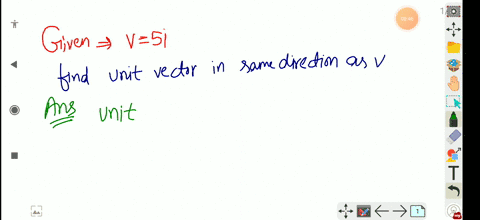 Given ⇒ v=5i
find unit vector in same direction as v
Ans unit